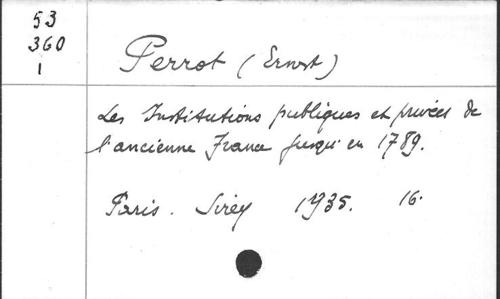 53
360
1
Perrot (Ernst)
Les Institutions publiques et privées de
l'ancienne France jusqu'en 1789.
Paris. Sirey 1935. 16.